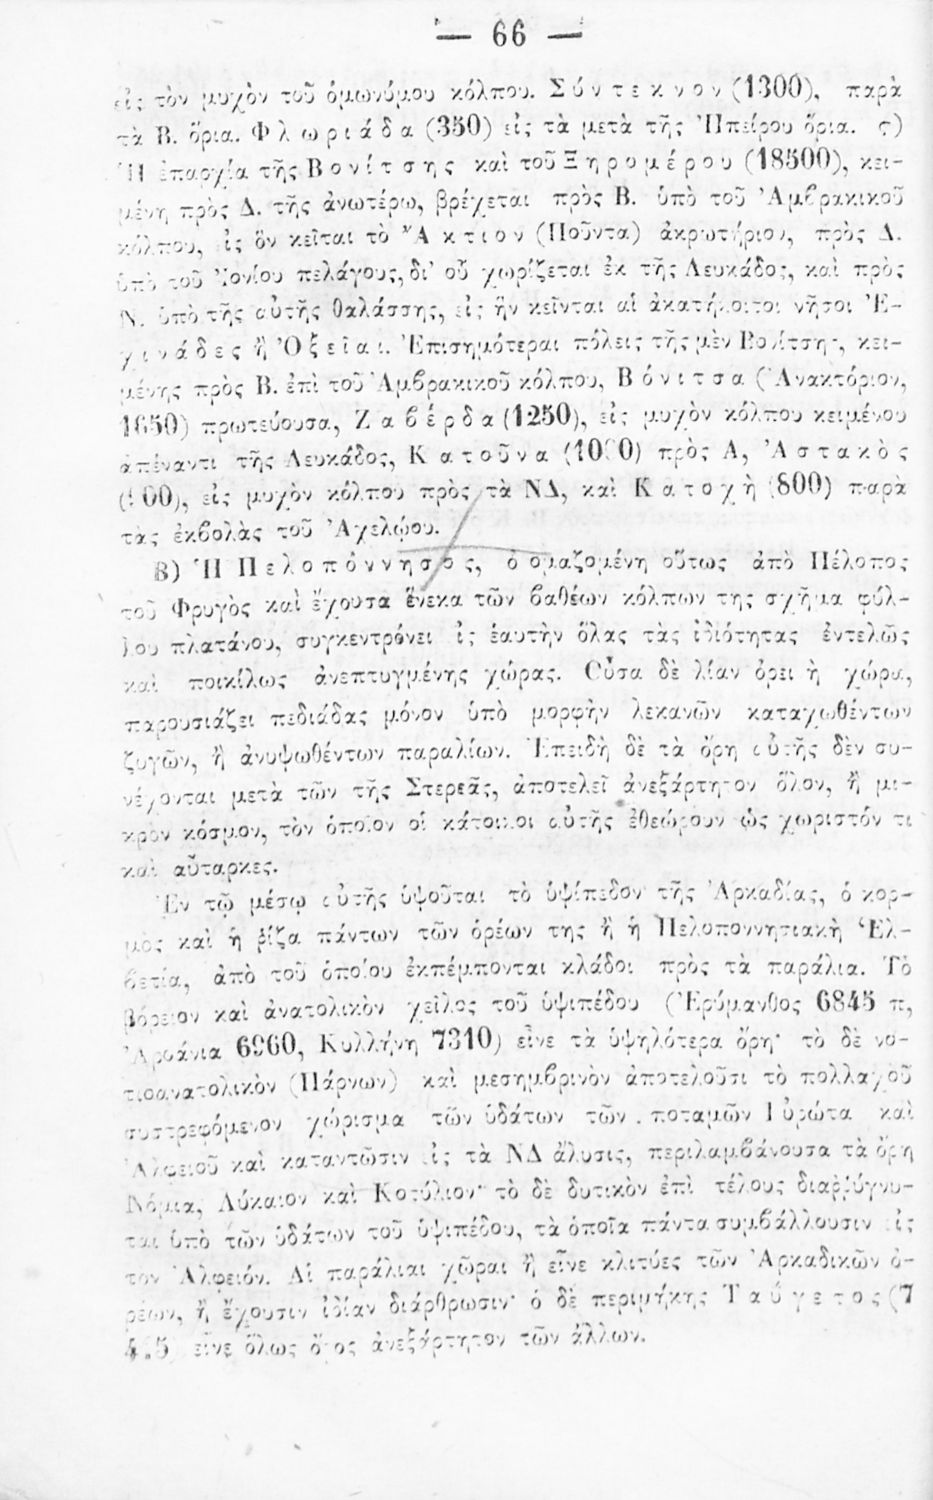 — 66 —
εἰς τὸν μυχὸν τοῦ ὁμωνύμου κόλπου. Σύντεκνον (1300), παρὰ
τὰ Β. ὅρια. Φλωριάδα (350) εἰς τὰ μετὰ τῆς Ἠπείρου ὅρια. ς)
Ἡ ἐπαρχία τῆς Βονίτσης καὶ τοῦ Ξηρομέρου (18500), κει-
μένη πρὸς Δ. τῆς ἀνωτέρω, βρέχεται πρὸς Β. ὑπὸ τοῦ Ἀμβρακικοῦ
κόλπου, εἰς ὃν κεῖται τὸ Ἄκτιον (Ποῦντα) ἀκρωτήριον, πρὸς Δ.
ὑπὸ τοῦ Ἰονίου πελάγους, δι' οὗ χωρίζεται ἐκ τῆς Λευκάδος, καὶ πρὸς
Ν. ὑπὸ τῆς αὐτῆς θαλάσσης, εἰς ἣν κεῖνται αἱ ἀκατήκοιτοι νῆσοι Ἐ-
χινάδες ἢ Ὀξεῖαι. Ἐπισημότεραι πόλεις τῆς μὲν Βονίτσης, κει-
μένης πρὸς Β. ἐπὶ τοῦ Ἀμβρακικοῦ κόλπου, Βόνιτσα (Ἀνακτόριον,
1650) πρωτεύουσα, Ζαβέρδα (1250), εἰς μυχὸν κόλπου κειμένου
ἀπέναντι τῆς Λευκάδος, Κατοῦνα (1000) πρὸς Α, Ἀστακὸς
εἰς μυχὸν κόλπου πρὸς τὰ ΝΔ, καὶ Κατοχὴ (800) παρὰ
τὰς ἐκβολὰς τοῦ Ἀχελῴου.
Β) Ἡ Πελοπόννησος, ὀνομαζομένη οὕτως ἀπὸ Πέλοπος
τοῦ Φρυγὸς καὶ ἔχουσα ἕνεκα τῶν βαθέων κόλπων της σχῆμα φύλ-
λου πλατάνου, συγκεντρόνει εἰς ἑαυτὴν ὅλας τὰς ἰδιότητας ἐντελῶς
καὶ ποικίλως ἀνεπτυγμένης χώρας. Οὖσα δὲ λίαν ὀρεινὴ χώρα,
παρουσιάζει πεδιάδας μόνον ὑπὸ μορφὴν λεκανῶν καταχωθέντων
ζυγῶν, ἢ ἀνυψωθέντων παραλίων. Ἐπειδὴ δὲ τὰ ὄρη αὐτῆς δὲν συ-
νέχονται μετὰ τῶν τῆς Στερεᾶς, ἀποτελεῖ ἀνεξάρτητον ὅλον, ἢ μι-
κρὸν κόσμον, τὸν ὁποῖον οἱ κάτοικοι αὐτῆς ἐθεώρουν ὡς χωριστόν τι
καὶ αὔταρκες.
Ἐν τῷ μέσῳ αὐτῆς ὑψοῦται τὸ ὑψίπεδον τῆς Ἀρκαδίας, ὁ κορ-
μὸς καὶ ἡ ῥίζα πάντων τῶν ὀρέων της ἢ ἡ Πελοποννησιακὴ Ἑλ-
βετία, ἀπὸ τοῦ ὁποίου ἐκπέμπονται κλάδοι πρὸς τὰ παράλια. Τὸ
βόρειον καὶ ἀνατολικὸν χεῖλος τοῦ ὑψιπέδου (Ἐρύμανθος 6845 π,
Ἀροάνια 6960, Κυλλήνη 7310) εἶνε τὰ ὑψηλότερα ὄρη· τὸ δὲ νο-
τιοανατολικὸν (Πάρνων) καὶ μεσημβρινὸν ἀποτελοῦσι τὸ πολλαχοῦ
συστρεφόμενον χώρισμα τῶν ὑδάτων τῶν ποταμῶν Εὐρώτα καὶ
Ἀλφειοῦ καὶ καταντῶσιν εἰς τὰ ΝΔ ἅλυσις, περιλαμβάνουσα τὰ ὄρη
Νόμια, Λύκαιον καὶ Κοτύλιον· τὸ δὲ δυτικὸν ἐπὶ τέλους διαῤῥύγνυ-
ται ὑπὸ τῶν ὑδάτων τοῦ ὑψιπέδου, τὰ ὁποῖα πάντα συμβάλλουσιν εἰς
τὸν Ἀλφειόν. Αἱ παράλιαι χῶραι ἢ εἶνε κλιτύες τῶν Ἀρκαδικῶν ὀ-
ρέων, ἢ ἔχουσιν ἰδίαν διάρθρωσιν· ὁ δὲ περιμήκης Ταΰγετος (7
εἶνε ὅλως ὄρος ἀνεξάρτητον τῶν ἄλλων.